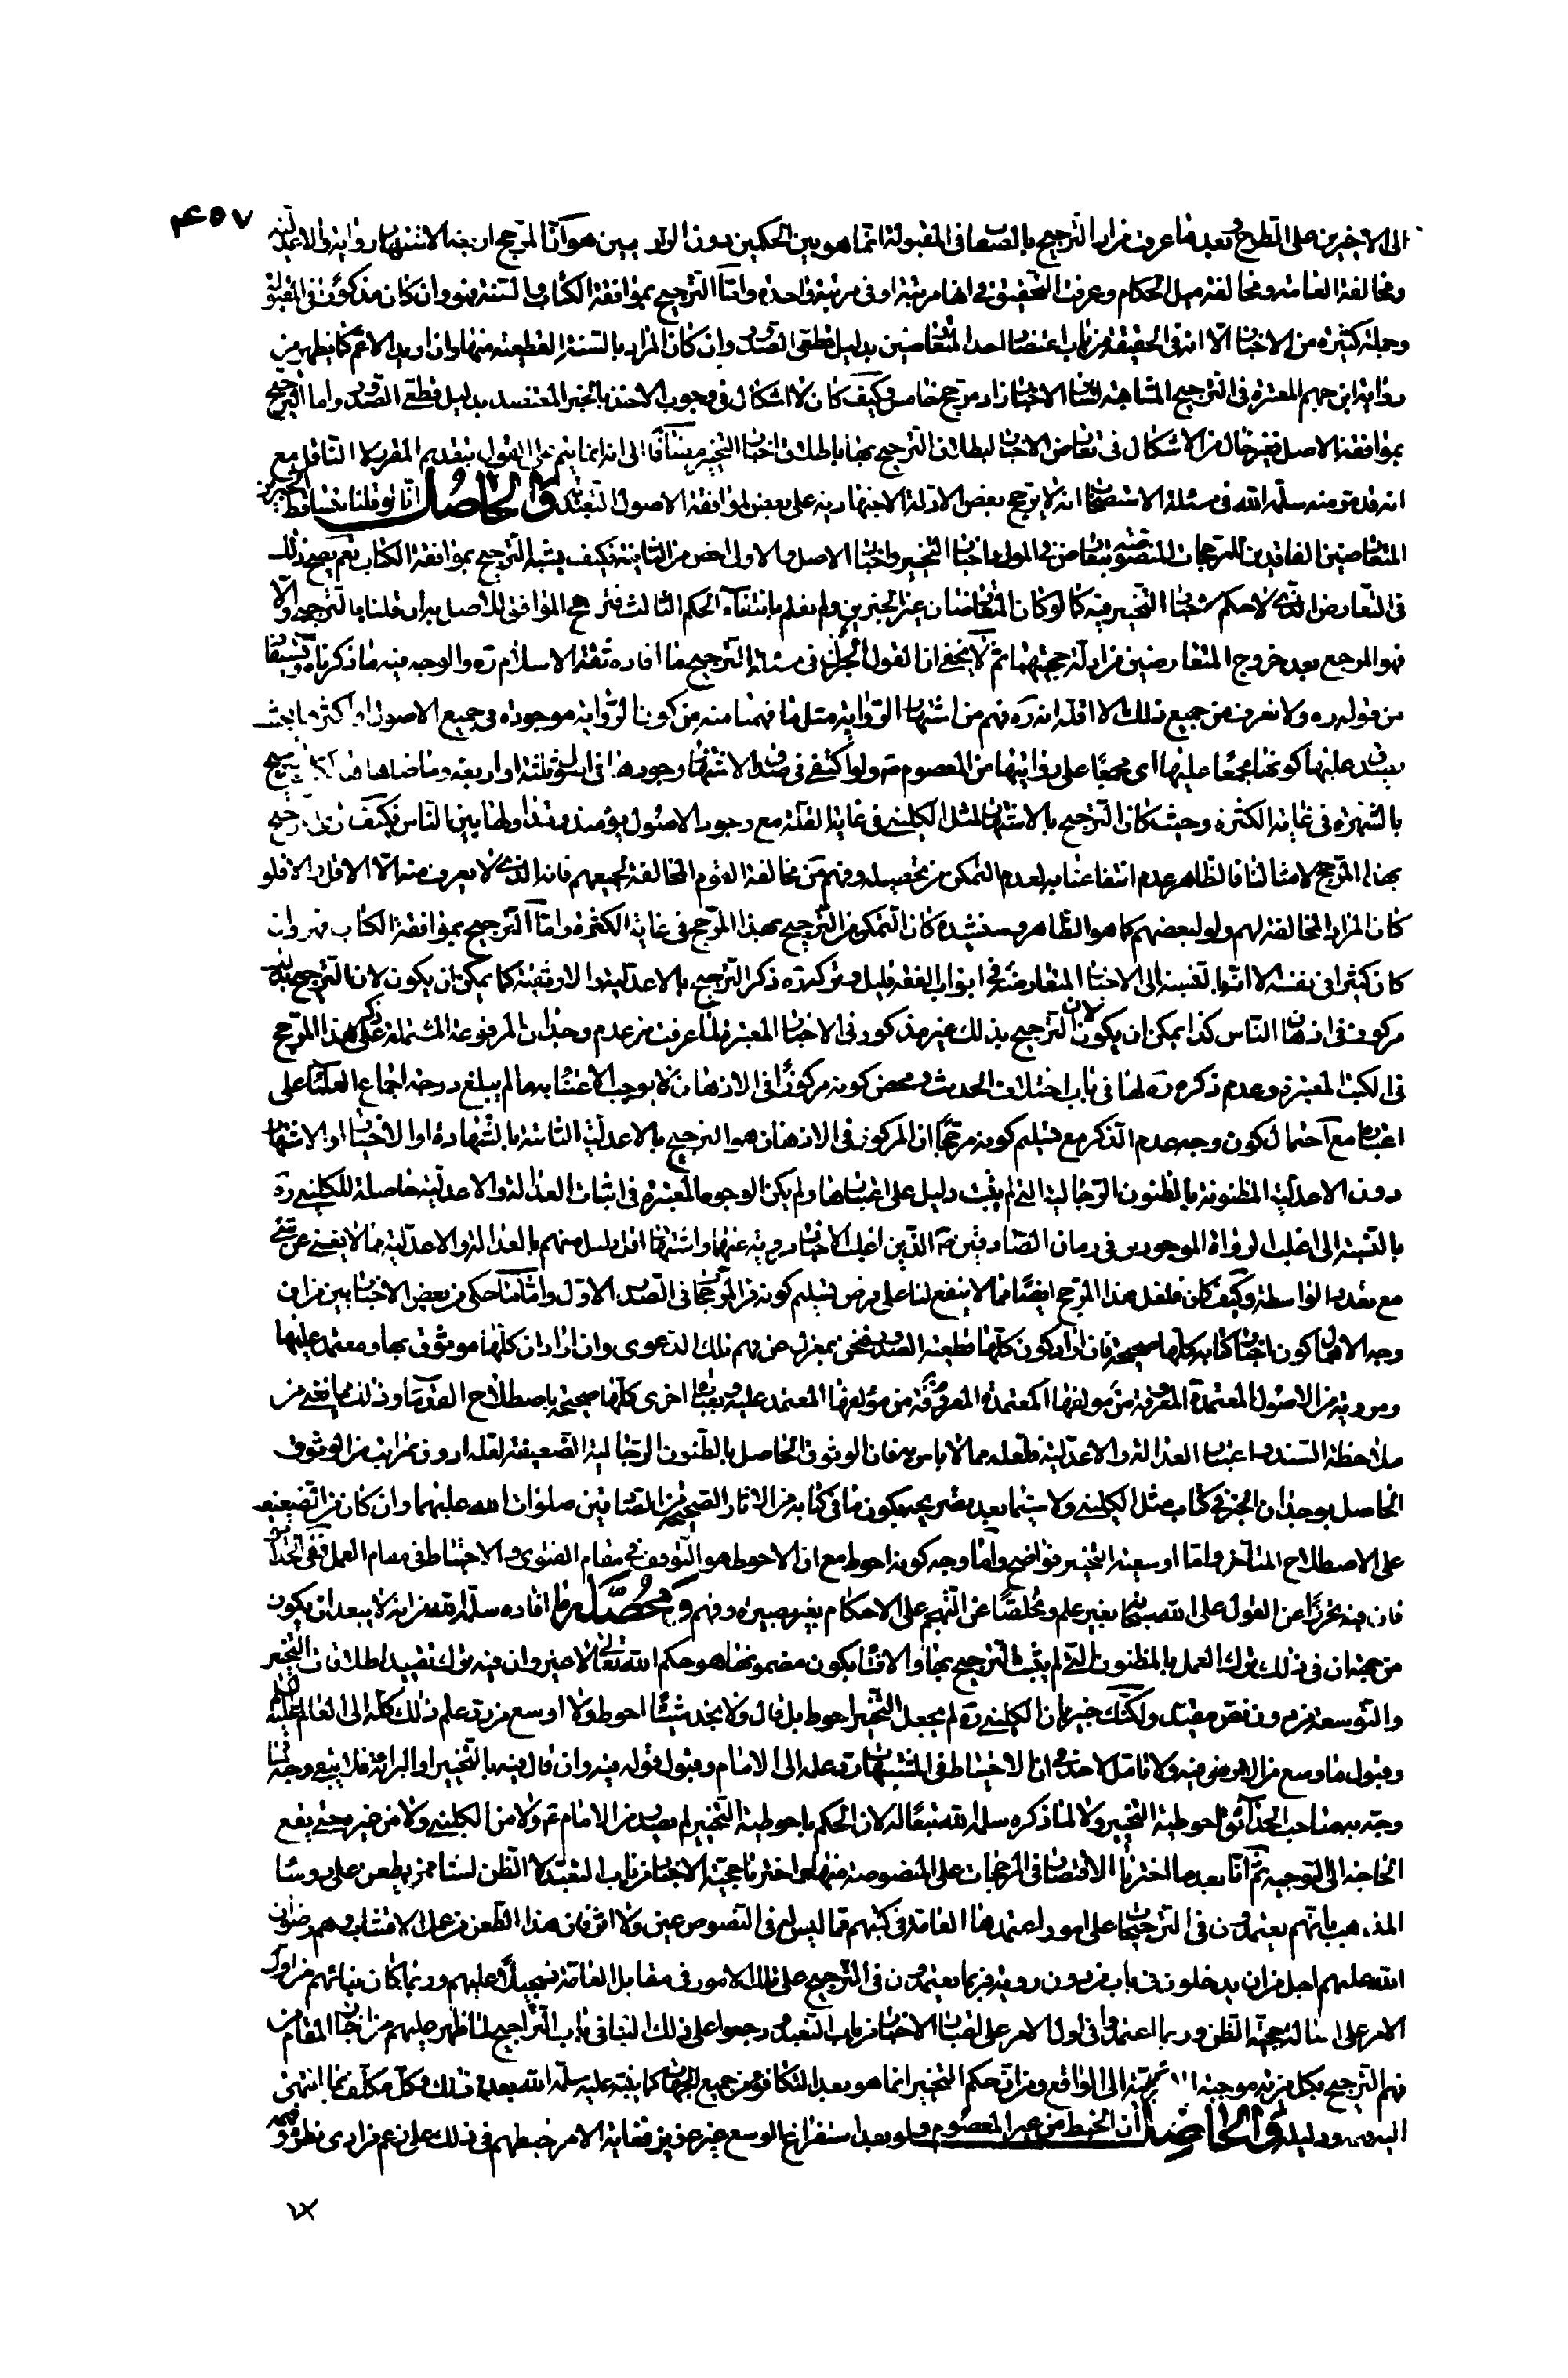 ۴۵۷
الى الاخيرين على الطرح بعد ما عرفت من ان الترجيح بالصفات فى المقبولة انما هو بين الحكمين دون الراويين هو ان المرجح اربعة الاشتهار رواية والاعدلية
ومخالفة العامة ومخالفة ميل الحكام وعرفت التحقيق فى انها مرتبة او فى مرتبة واحدة واما الترجيح بموافقة الكتاب والسنة فهو وان كان مذكورا فى المقبولة
وجملة كثيرة من الاخبار الا انه فى الحقيقة من باب اعتضاد احد المتعارضين بدليل قطعى الصدور وان كان المراد بالسنة القطعية منها وان اريد الاعم كما يظهر من
رواية ابن جهم المعتبرة فى الترجيح المشابهة لسائر الاخبار زاد مرجح خامس وكيف كان لا اشكال فى وجوب الاخذ بالخبر المعتضد بدليل قطعى الصدور واما الترجيح
بموافقة الاصل فغير خال من الاشكال فى تعارض الاخبار لبطلان الترجيح بها باطلاق اخبار التخيير مضافا الى انه انما يتم على القول بتقديم المقرر لا الناقل مع
انه قد مر منه سلمه الله فى مسئلة الاستصحاب انه لا يرجح بعض الادلة الاجتهادية على بعض لموافقة الاصول التعبدية والحاصل انا لو قلنا بتساقط الخبرين
المتعارضين الفاقدين للمرجحات المنصوصة بتعارض اخبار التخيير واخبار الاصل والاولى اخص من الثانية فكيف يشبه الترجيح بموافقة الكتاب نعم يصح ذلك
فى التعارض الذى لا حكم لاخبار التخيير فيه كما لو كان المتعارضان غير الخبرين ولم نعلم بانتفاء الحكم الثالث فترجح الموافق للاصل به ان قلنا بالترجيح والا
فهو المرجع بعد خروج المتعارضين من ادلة حجيتهما ثم لا يخفى ان القول الجزل فى مسئلة الترجيح ما افاده ثقة الاسلام ره والوجه فيه ما ذكرناه
من قوله ره ولا نعرف من جميع ذلك الا اقله انه ره فهم من اشتهار الرواية مثل ما فهمنا منه من كون الرواية موجودة فى جميع الاصول او اكثرها بحيث
يصدق عليها كونها مجمعا عليها اى مجمعا على روايتها من المعصوم ع ولو اكتفى فى صدق الاشتهار وجودها فى اصول ثلثة او اربعة وما ضاهاها
بالشهرة فى غاية الكثرة وحيث كان الترجيح بالاشتهار لمثل الكلينى فى غاية القلة مع وجود الاصول يومئذ وتداولها بين الناس فكيف
بهذا المرجح لامثالنا فالظاهر عدم انتفاعنا به لعدم التمكن من تحصيله وفهم من مخالفة القوم المخالفة لجميعهم فانه الذى لا يعرف منه الا الاقل والا فلو
كان المراد المخالفة لهم ولو لبعضهم كما هو الظاهر كان التمكن من الترجيح بهذا المرجح فى غاية الكثرة واما الترجيح بموافقة الكتاب فهو وان
كان كثيرا فى نفسه الا انها بالنسبة الى الاخبار المتعارضة فى ابواب الفقه قليل وتركه ره ذكر الترجيح بالاعدلية والاوثقية كما يمكن ان يكون لان الترجيح بذلك
مركوز فى اذهان الناس كذا يمكن ان يكون لان الترجيح بذلك غير مذكور فى الاخبار المعتبرة لما عرفت من عدم وجدان المرفوعة المشتملة على ذكر هذا المرجح
فى الكتب المعتبرة وعدم ذكره ره لها فى باب اختلاف الحديث ومحض كونه مركوزا فى الاذهان لا يوجب الاعتناء به ما لم يبلغ درجة اجماع العلماء على
اعتباره مع احتمال كون وجه عدم الذكر مع تسليم كونه مرجحا ان المركوز فى الاذهان هو الترجيح بالاعدلية الثابتة بالشهادة او الاختبار او الاشتهار
دون الاعدلية المظنونة بالظنون الرجالية التى لم يثبت دليل على اعتبارها ولم يكن الوجوه المعتبرة فى اثبات العدالة والاعدلية حاصلة للكلينى ره
بالنسبة الى اغلب الرواة الموجودين فى زمان الصادقين ع الذين اغلب الاخبار مروية عنهما واشتهار اقل قليل منهم بالعدالة والاعدلية مما لا يغنى عن شئ
مع تعدد الواسطة وكيف كان فلعل هذا المرجح ايضا مما لا ينفع لنا على فرض تسليم كونه من المرجحات فى الصدر الاول واما ما حكى من بعض الاخباريين من ان
وجه الاهمال كون اخبار كتابه كلها صحيحة فان اراد كون كلها قطعية الصدور فنحن بمعزل عن فهم تلك الدعوى وان اراد ان كلها موثوق بها ومعتمد عليها
ومروية من الاصول المعتمدة المعروفة من مؤلفها المعتمد عليه وبعبارة اخرى كلها صحيحة باصطلاح القدماء وذلك مما يغنى من
ملاحظة السند واعتبار العدالة والاعدلية فلعله مما لا باس به فان الوثوق الحاصل بالظنون الرجالية الضعيفة لعله ادون بمراتب من الوثوق
الحاصل بوجدان الخبر فى كتاب مثل الكلينى ولا سيما بعد تصريحه بكون ما فى كتابه من الاثار الصحيحة من الصادقين صلوات الله عليهما وان كان من الضعيف
على الاصطلاح المتاخر واما اوسعية التخيير فواضح واما وجه كونه احوط مع ان الاحوط هو التوقف فى مقام الفتوى والاحتياط فى مقام العمل
فان فيه تحرزا عن القول على الله سبحانه بغير علم وتخلصا عن التهجم على الاحكام بغير بصيرة وفهم ومحصل ما افاده سلمه الله من انه لا يبعد ان يكون
من جهة ان فى ذلك ترك العمل بالمظنون التى لم يثبت الترجيح بها والافتاء بكون مضمونها هو حكم الله تعالى لا غير وان فيه ترك تقييد اطلاقات التخيير
والتوسعة من دون نص مقيد ولكنك خبير بان الكلينى ره لم يجعل التخيير احوط بل قال ولا نجد شيئا احوط ولا اوسع من رد علم ذلك كله الى العالم عليه السلام
وقبول ما وسع من الامر فيه ولا تامل لاحد فى ان الاحتياط فى المشتبهات رد علمه الى الامام وقبول قوله فيه وان قال فيه بالتخيير او البرائة فلا يتبع وجه لما
وجه به صاحب الحدائق احوطية التخيير ولا لما ذكره سلمه الله تبعا له لان الحكم باحوطية التخيير لم يصدر من الامام ع ولا من الكلينى ولا من غيره حتى يقع
الحاجة الى التوجيه ثم انا بعد ما اخترنا الاقتصار فى المرجحات على المنصوصة منها واخترنا حجية الاخبار من باب التعبد لا الظن لسنا ممن يطعن على رؤسا
المذهب بانهم يعتمدون فى الترجيحات على امور اعتمدها العامة فى كتبهم مما ليس فى النصوص عين ولا اثر فان هذا الطعن من الاشتباه وهم رضوان
الله عليهم اجل من ان يدخلون فى باب من دون روية فربما يعتمدون فى الترجيح على تلك الامور فى مقابل العامة تسجيلا عليهم وربما كان بنائهم من اول
الامر على اصالة حجية الظن وربما اعتمدوا فى اول الامر على اعتبار الاخبار من باب التعبد ورجعوا على ذلك البناء فى باب التراجيح لما ظهر عليهم من اخبار المقام من
فهم الترجيح بكل مزية موجبة الى الواقع ومن ان حكم التخيير انما هو بعد التكافؤ من جميع الجهات كما ينبه عليه سلمه الله بعد ذلك وكل مكلف بما انتهى
اليه ودليله والحاصل ان الخبط من غير المعصوم ولو بعد استفراغ الوسع غير عزيز فغاية الامر خبطهم فى ذلك على زعم من ادى نظره